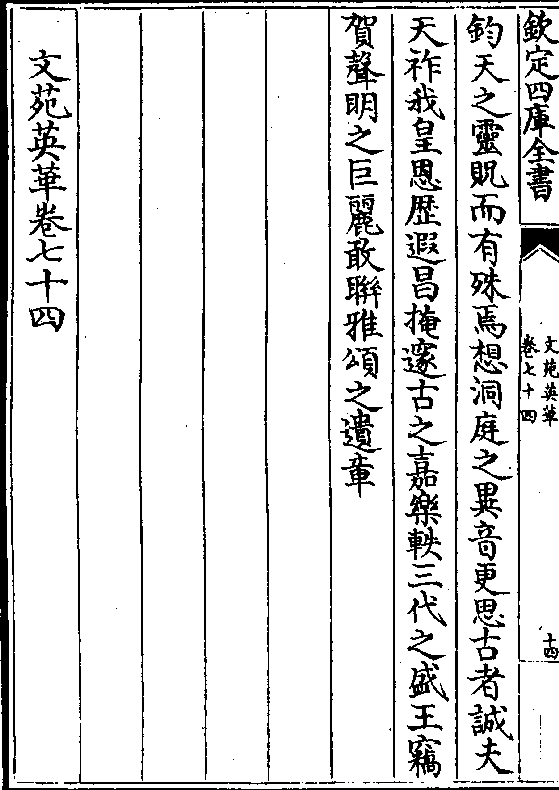 欽定四庫全書
文苑英華
卷七十四
十四
鈞天之靈貺而有殊焉想洞庭之異音更思古者誠夫
天祚我皇恩歴遐昌掩邃古之嘉樂軼三代之盛王竊
賀聲明之巨麗敢聨雅頌之遺章
文苑英華卷七十四